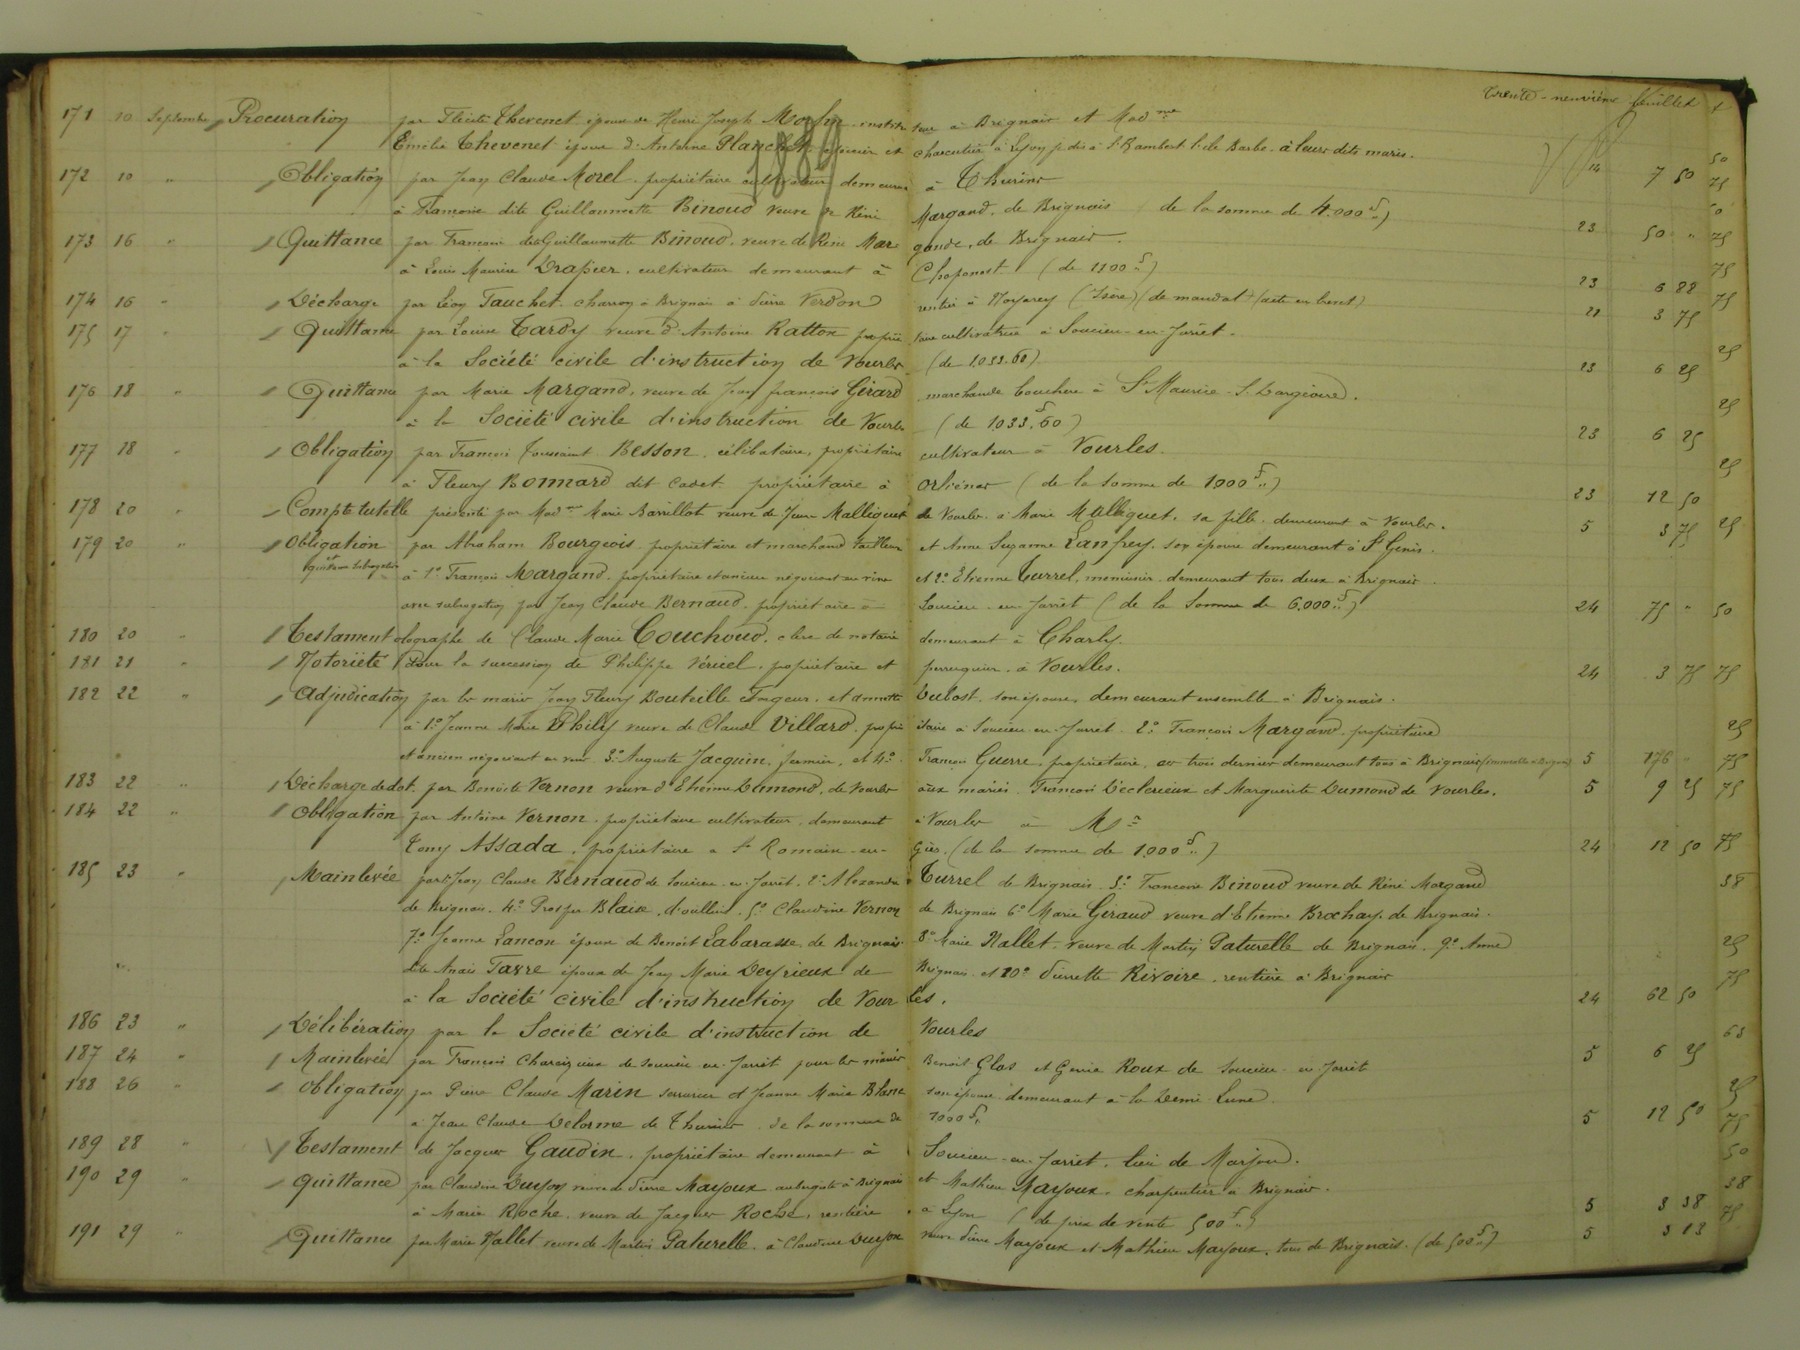 trente-neuvième feuillet
1889
171 10 Septembre Procuration par Thevenet épouse de Henri Joseph à Brignais et Mad me
Emélie Thevenet épouse d'Antoine épicier et charcutier à Lyon à St Rambert l'ile Barbe. à leurs dits maris. 14 7 50
172 10 " Obligation par Jean Claude Morel. propriétaire cultivateur demeurant à Thurins
à Françoise dite Guillaumette Binoud veuve de Réné Margand. de Brignais (de la somme de 4.000 f..) 23 50 "
173 16 " Quittance par Françoise dite Guillaumette Binoud. veuve de Réné Margand. de Brignais.
à Louis Maurice Drapier. cultivateur demeurant à Chaponost (de 1100 f) 23 6 88
174 16 " Décharge par Léon Fauchet. charron à Brignais à Pierre Verdon rentier à Noyarey (Isère) (de mandat) (acte en brevet) 21 3 75
175 17 " Quittance par Louise Tardy veuve d'Antoine Ratton propriétaire cultivateur à Soucieu-en-Jarret.
à la Société civile d'instruction de Vourles (de 1.033.60) 23 6 25
176 18 " Quittance par Marie Margand, veuve de Jean françois Girard marchande bouchère à St Maurice-S. Dargoire.
à la Société civile d'instruction de Vourles (de 1033 f, 60) 23 6 25
177 18 " Obligation par François Toussaint Besson. célibataire, propriétaire cultivateur à Vourles.
à Fleury Bonnard dit Cadet propriétaire à Orliénas (de la somme de 1,000 f..) 23 12 50
178 20 " Compte tutelle présenté par Mad me Marie Barrillot veuve de Malliquet de Vourles. à Marie Malliquet. sa fille. demeurant à Vourles. 5 3 75
179 20 " Obligation par Abraham Bourgeois propriétaire et marchand tailleur et Anne Suzanne Lanfrey. son épouse demeurant à St Genis.
et quittance subrogation à 1° François Margand. propriétaire et ancien négociant en vins et 2° Etienne Turrel, menuisier. demeurant tous deux à Brignais.
avec subrogation par Jean Claude Bernaud, propriétaire à Soucieu-en-Jarret (de la Somme de 6.000 f..) 24 75 "
180 20 " Testament olographe de Claude Marie Couchoud. clerc de notaire demeurant à Charly.
181 21 " Notoriété pour la succession de Philippe Véricel. propriétaire et perruquier. à Vourles. 24 3 75
182 22 " Adjudication par les mariés Jean Fleury Bouteille et Dubost. son épouse, demeurant ensemble à Brignais.
à 1° Jeanne Marie Phily veuve de Claude Villard. propriétaire à Soucieu-en-Jarret. 2° François Margand. propriétaire
et ancien négociant en vins. 3° Auguste Jacquin. fermier. et 4° François Guerre. propriétaire. ces trois derniers demeurant tous à Brignais (immeuble à Brignais) 5 176 "
183 22 " Décharge de dot. par Benoite Vernon veuve d'Etienne Dumond. de Vourles aux mariés François Déclérieux et Marguerite Dumond de Vourles. 5 9 25
184 22 " Obligation par Antoine Vernon. propriétaire cultivateur. demeurant à Vourles à Mr
Tony Assada. propriétaire à St Romain-en-Gier. (de la somme de 1.000 f..) 24 12 50
185 23 " Mainlevée par 1° Jean Claude Bernaud de Soucieu-en-Jarret. 2° Alexandre Turrel de Brignais. 3° Françoise Binoud veuve de Réné Margand
de Brignais. 4° Prosper Blaise. d'oullins. 5° Claudine Vernon de Brignais 6° Marie Giraud veuve d'Etienne Brochay. de Brignais.
7° Jeanne Lancon épouse de Benoît Labarasse de Brignais. 8° Marie Nallet. veuve de Martin Paturelle de Brignais. 9° Anne
dite Anais Favre épouse de Jean Marie Deyrieux de Brignais. et 10° Pierrette Rivoire. rentière à Brignais
à la Société civile d'instruction de Vourles. 24 62 50
186 23 " Délibération par la Société civile d'instruction de Vourles
187 24 " Mainlevée par François de Soucieu-en-Jarret pour les mariés Benoit Glas et Roux de Soucieu-en-Jarret 5 6 25
188 26 " Obligation par Pierre Claude Marin serrurier et Jeanne Marie Blanc son épouse demeurant à la Demi-Lune.
à Jean Claude Delorme de Thurins. de la somme de 1000 f.. 5 12 50
189 28 " Testament de Jacques Gaudin. propriétaire demeurant à Soucieu-en-Jarret. lieu de Marjon.
190 29 " Quittance par Claudine Duyon veuve de Pierre Mayoux aubergiste à Brignais et Mathieu Mayoux. charpentier à Brignais.
à Marie Roche. veuve de Jacques Roche. rentière à Lyon (de prix de vente 500 f..) 5 3 38
191 29 " Quittance par Marie Nallet veuve de Martin Paturelle. à Claudine Duyon veuve Pierre Mayoux et Mathieu Mayoux. tous de Brignais. (de 500 f..) 5 3 13